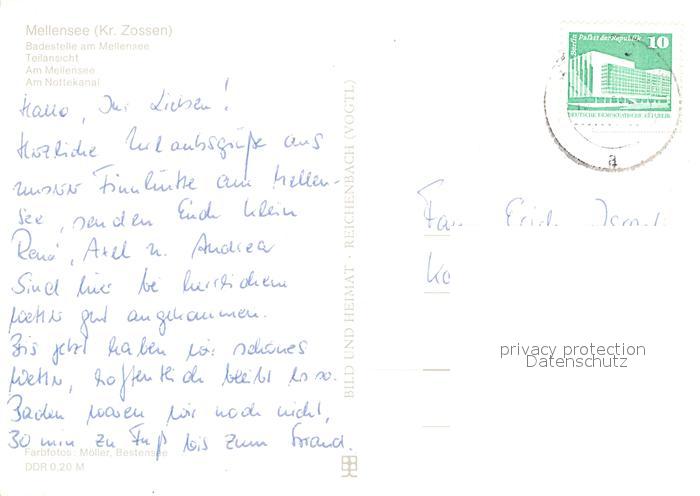 Mellensee (Kr. Zossen)
Badestelle am Mellensee
Teilansicht
Am Mellensee
Am Nottekanal
Hallo, Ihr Lieben!
Herzliche Urlaubsgrüße aus
unserer Finnhütte am Mellen-
see, senden Euch klein
René, Axel u. Andrea
Sind hier bei herrlichem
Wetter gut angekommen.
Bis jetzt haben wir schönes
Wetter, hoffentlich bleibt es so.
Baden waren wir noch nicht,
30 min zu Fuß bis zum Strand.
Farbfotos: Möller, Bestensee
DDR 0,20 M
BILD UND HEIMAT · REICHENBACH (VOGTL)
Berlin Palast der Republik
10
DEUTSCHE DEMOKRATISCHE REPUBLIK
a
Fam. Erich
privacy protection
Datenschutz